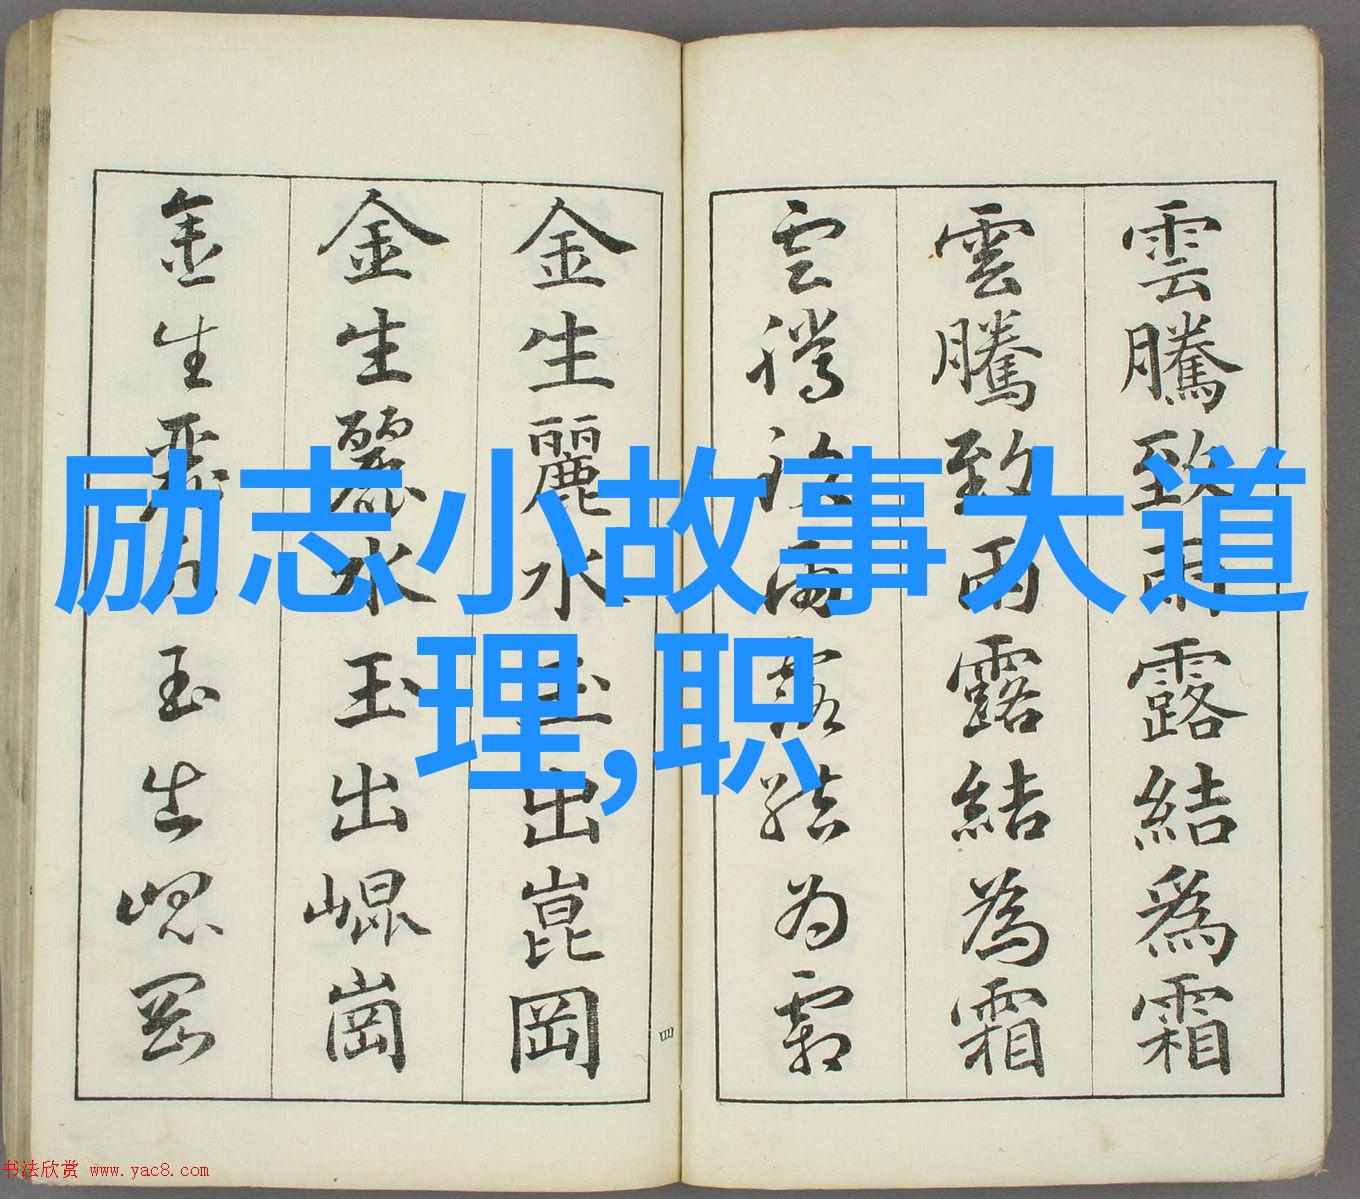 雲騰致雨露結爲霜
雲騰致雨露結為霜
雲騰致雨露結为霜
金生麗水玉出崑岡
金生麗水玉出崐崗
金生麗水玉出崐岡
四
励志小故事大道
理,职
书法欣赏 www.yac8.com